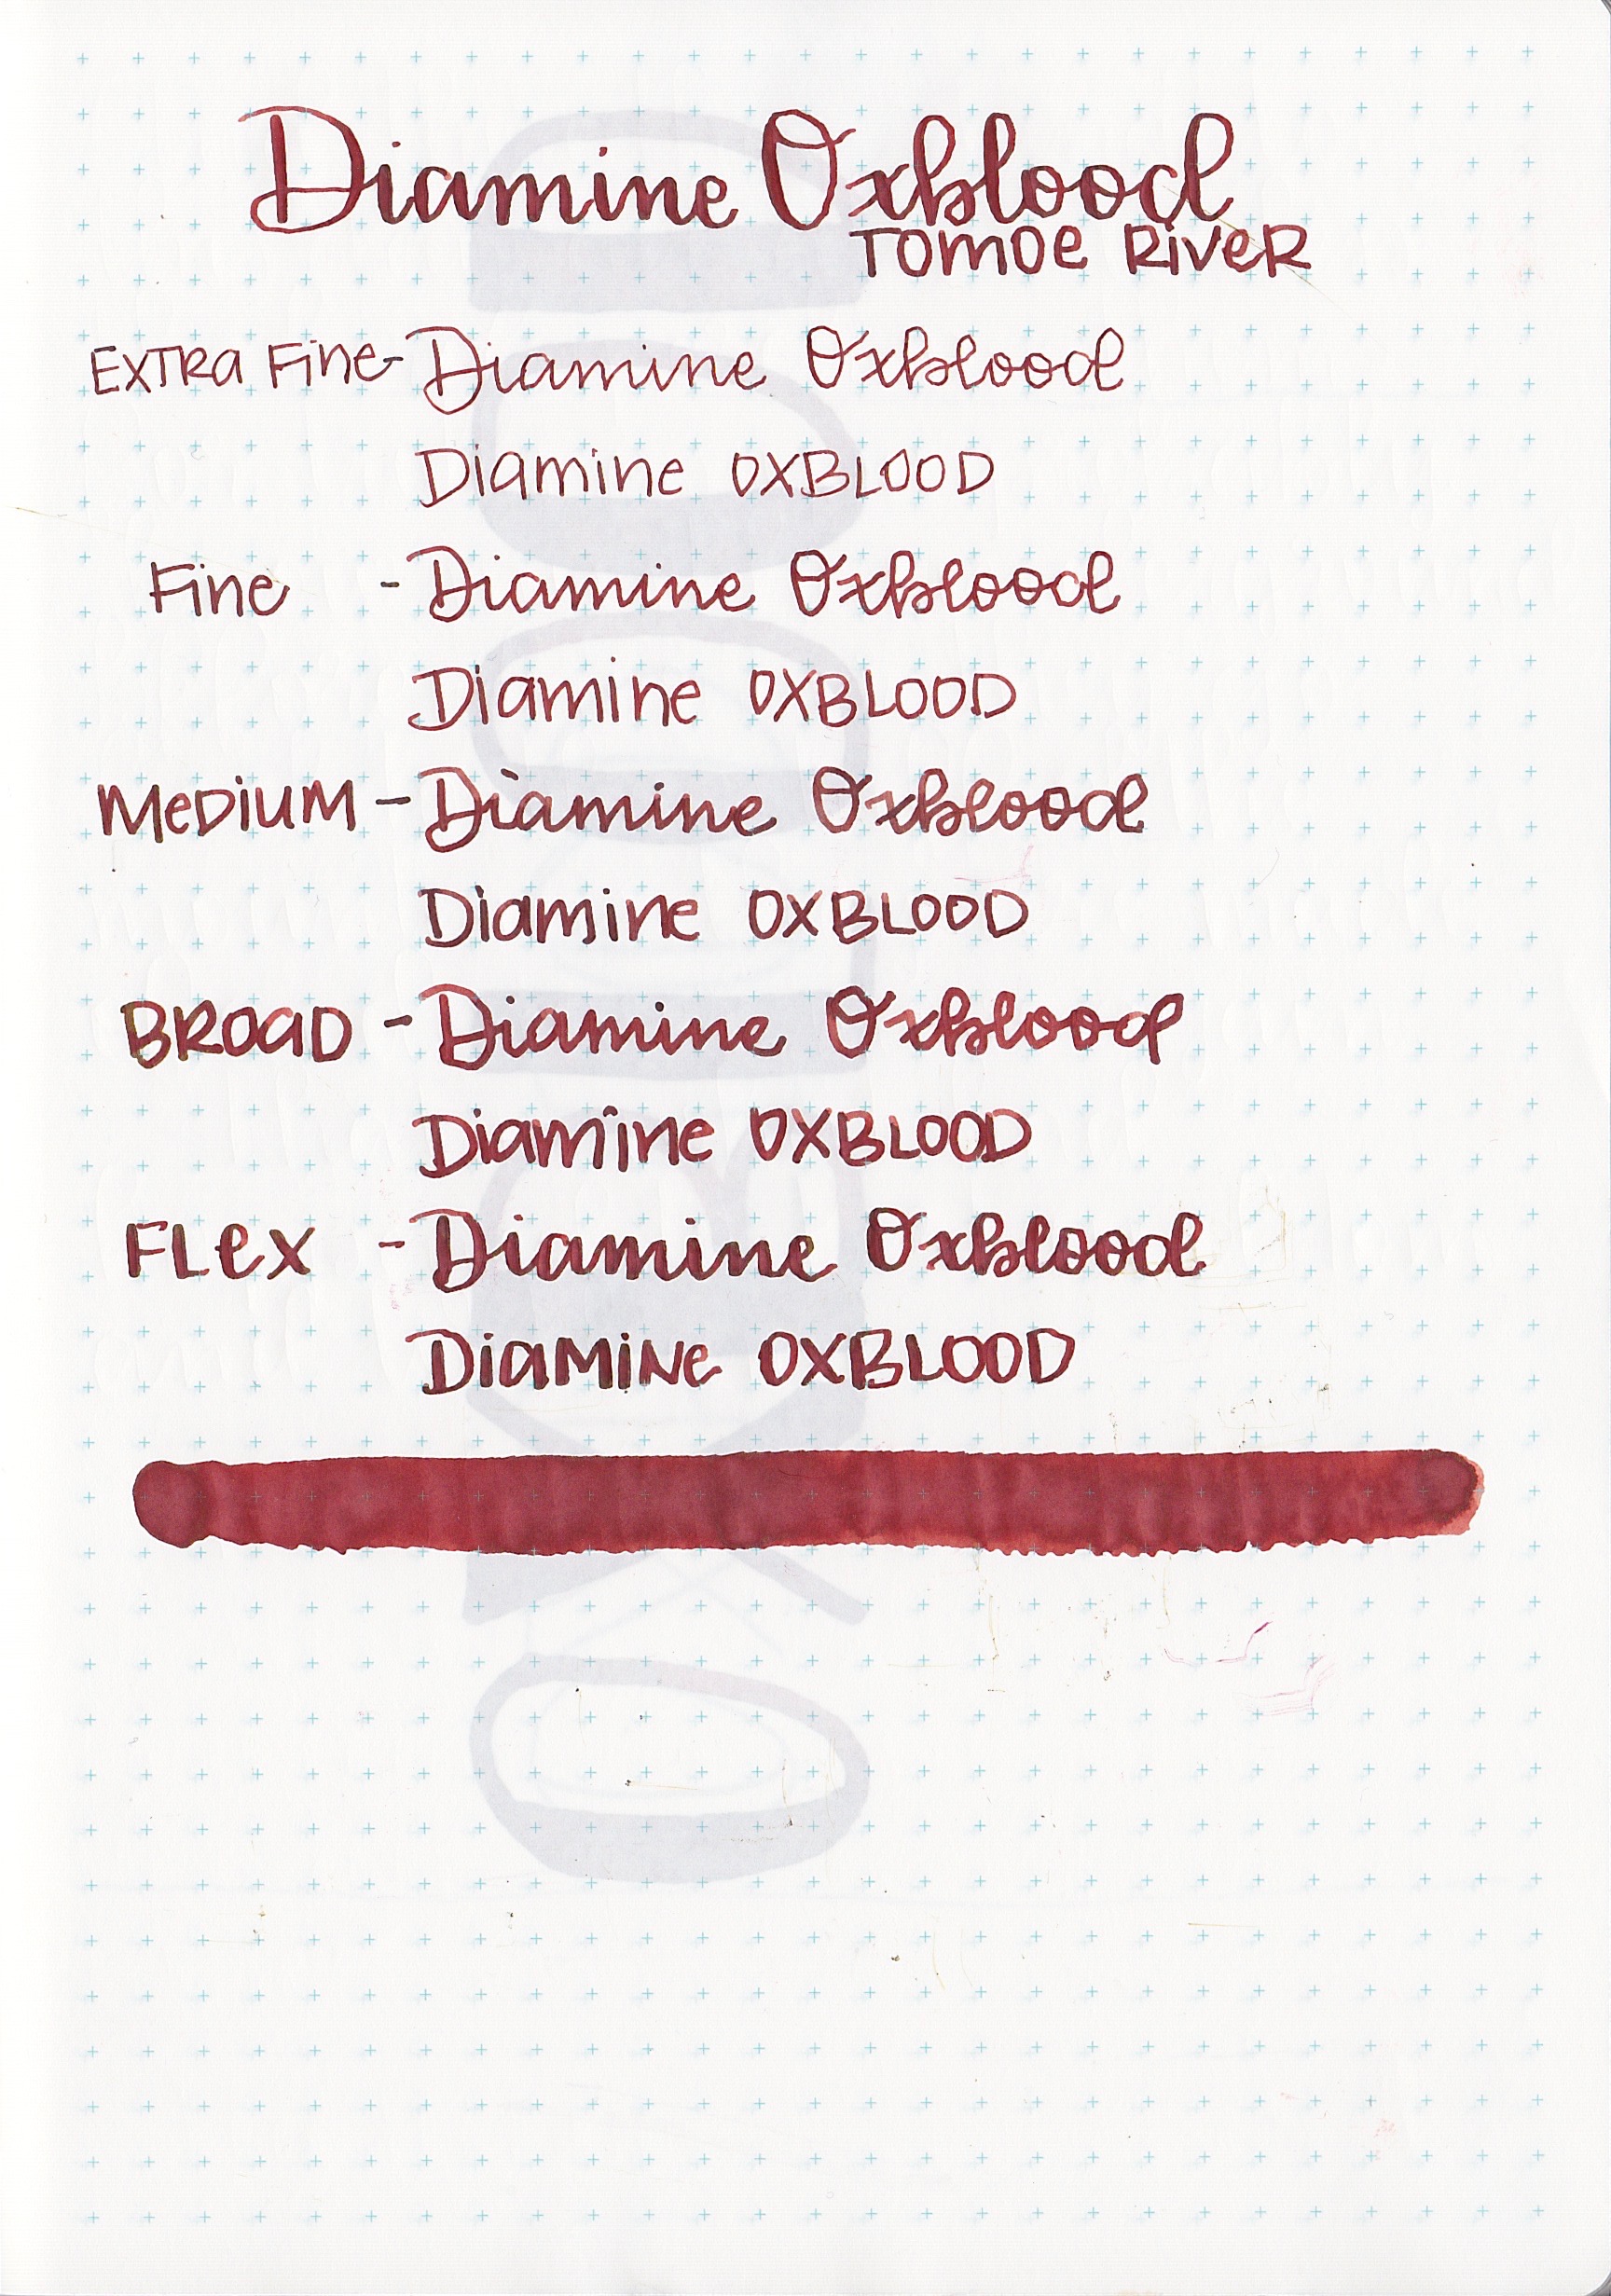 Diamine Oxblood
TOMOE RiVeR
EXTRa Fine- Diamine Oxblood
Diamine OXBLOOD
Fine - Diamine Oxblood
Diamine OXBLOOD
MeDiUM - Diamine Oxblood
Diamine OXBLOOD
BROaD - Diamine Oxblood
Diamine OXBLOOD
FLeX - Diamine Oxblood
DiaMiNe OXBLOOD